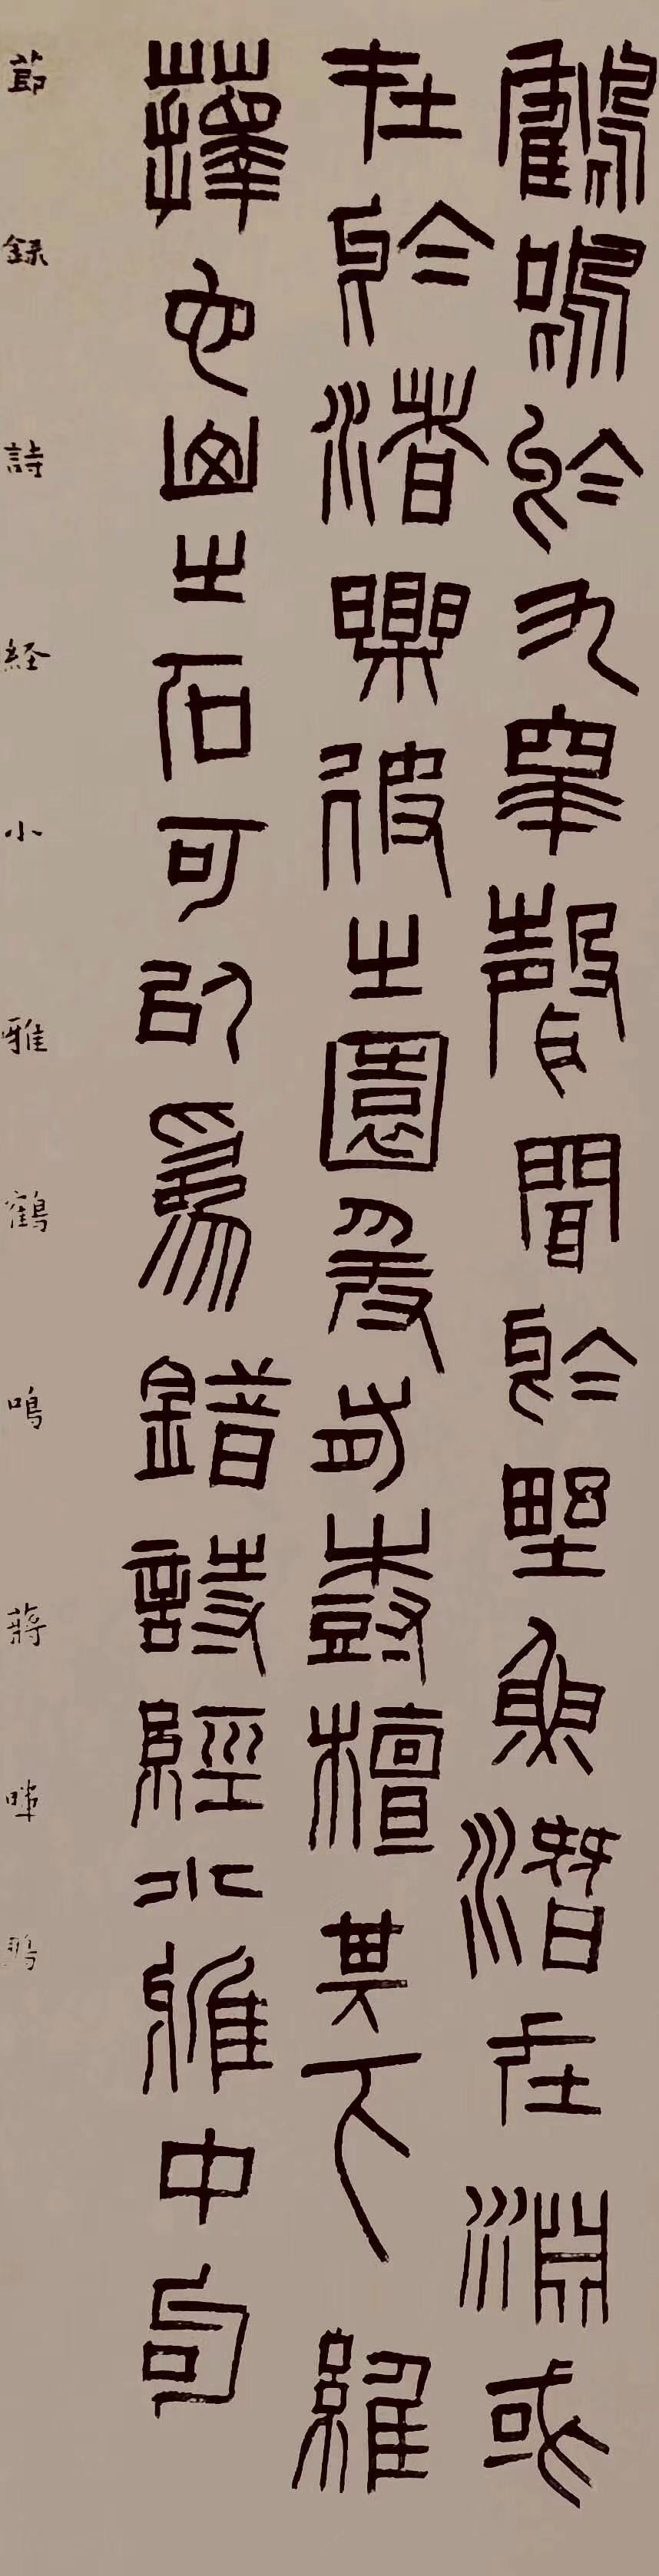 鶴鳴於九皋聲聞於野魚潛在淵或
在於渚樂彼之園爰有樹檀其下維
蘀它山之石可以爲錯詩經小雅中句
節録詩経小雅鶴鳴蔣暉